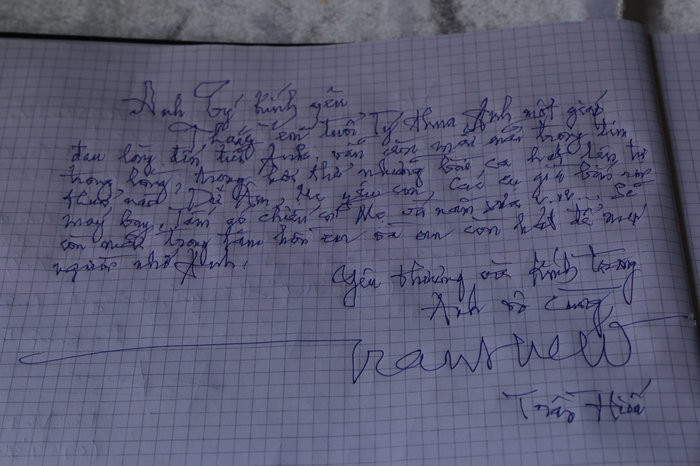 Anh Tý kính yêu
Thằng em tuổi Tý thua Anh một giáp
đau lòng đến tiễn Anh, vẫn còn mãi mãi trong tim
trong lòng, trong hơi thở những bài ca hát lên từ
thuở nào Dư âm, Mẹ yêu con, Các cụ già bắn rơi
máy bay, Tấm áo chiến sĩ Mẹ vá năm xưa v.v.. Sẽ
còn mãi trong tâm hồn em và em còn hát để mọi
người nhớ Anh.
Yêu thương và kính trọng
Anh vô cùng
Tranhieu
Trần Hiếu